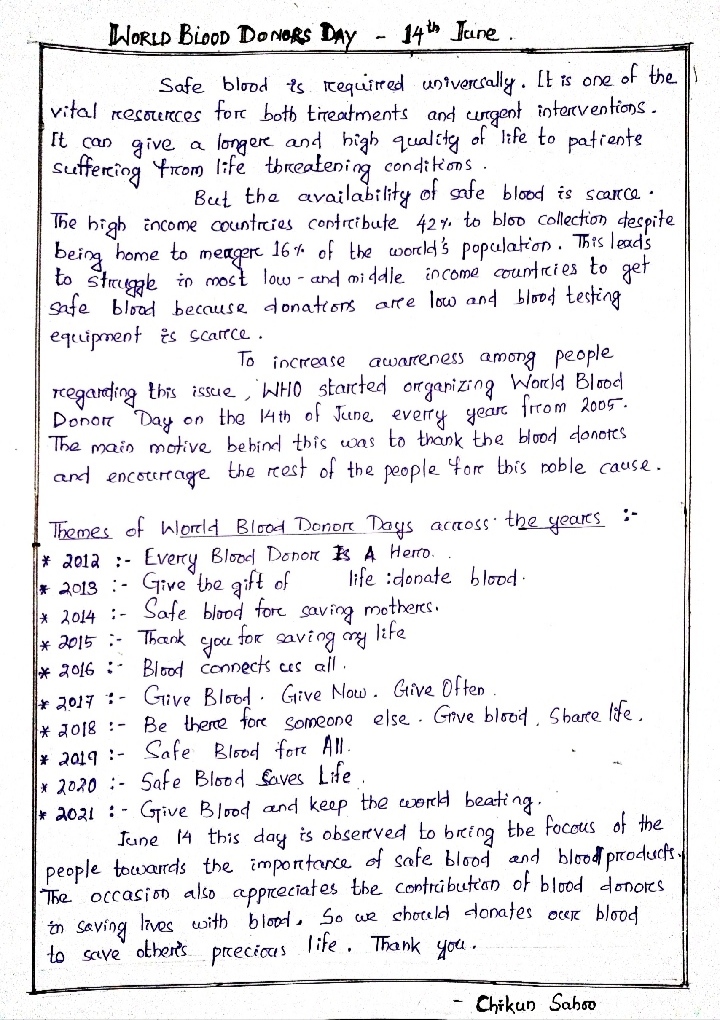 WORLD BLOOD DONORS DAY - 14th June.
Safe blood is required universally. It is one of the
vital resources for both treatments and urgent interventions.
It can give a longer and high quality of life to patients
suffering from life threatening conditions.
But the availability of safe blood is scarce.
The high income countries contribute 42% to bloo collection despite
being home to meager 16% of the world's population. This leads
to struggle in most low-and middle income countries to get
safe blood because donations are low and blood testing
equipment is scarce.
To increase awareness among people
regarding this issue, WHO started organizing World Blood
Donor Day on the 14th of June every year from 2005.
The main motive behind this was to thank the blood donors
and encourage the rest of the people for this noble cause.
Themes of World Blood Donor Days across the years :-
* 2012 :- Every Blood Donor Is A Hero.
* 2013 :- Give the gift of life : donate blood.
* 2014 :- Safe blood for saving mothers.
* 2015 :- Thank you for saving my life
* 2016 :- Blood connects us all.
* 2017 :- Give Blood. Give Now. Give Often.
* 2018 :- Be there for someone else. Give blood, Share life.
* 2019 :- Safe Blood for All.
* 2020 :- Safe Blood Saves Life.
* 2021 :- Give Blood and keep the world beating.
June 14 this day is observed to bring the focous of the
people towards the importance of safe blood and blood products.
The occasion also appreciates the contribution of blood donors
in saving lives with blood. So we should donates our blood
to save other's precious life. Thank you.
- Chikun Sahoo